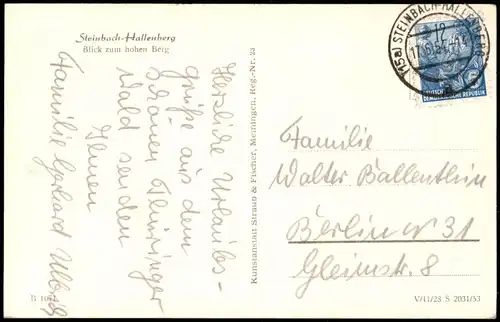 Steinbach-Hallenberg
Blick zum hohen Berg
Herzliche Urlaubs-
grüße aus dem
schönen Thüringer
Wald senden
Ihnen
Familie Gerhard
B 10
Kunstanstalt Straub & Fischer, Meiningen, Reg.-Nr. 23
(15a) STEINBACH-HALLENBERG
12
DEUTSCHE
DEMOKRATISCHE REPUBLIK
Familie
Walter Ballenthin
Berlin N 31
Gleimstr. 8
V/11/28 S 2031/53